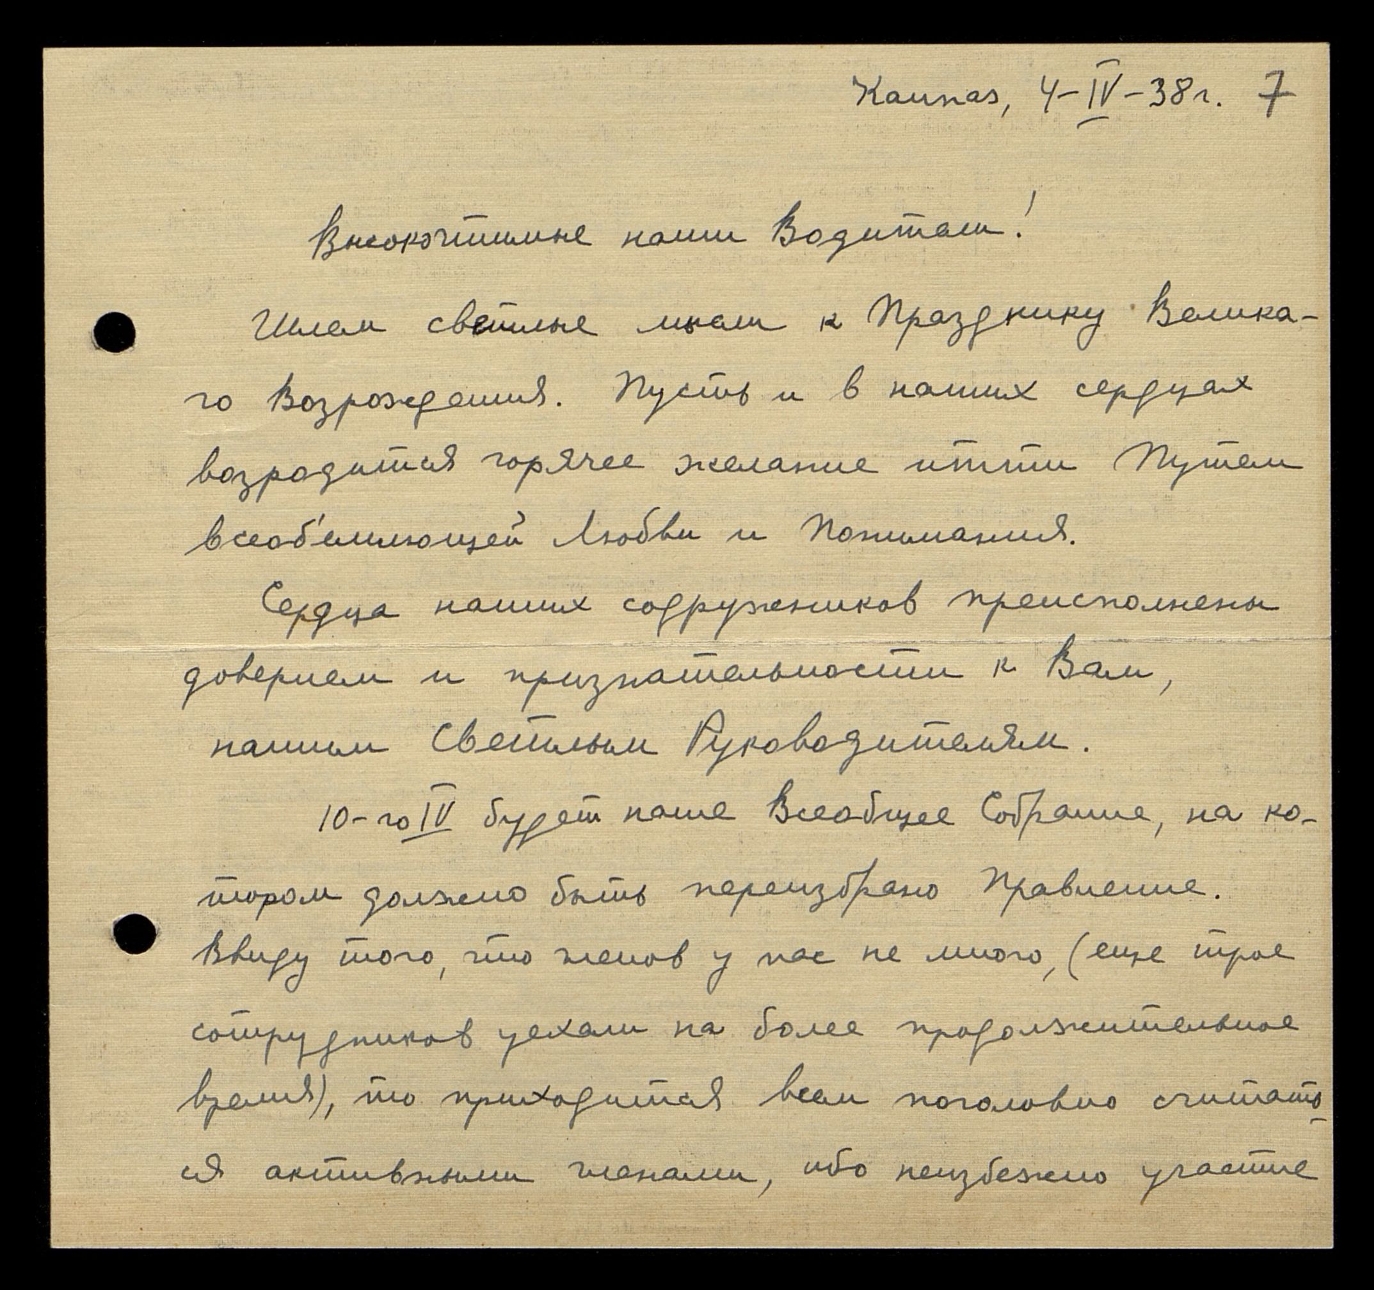 Kaunas, 4-IV-38г. 7
Высокочтимые наши Водители!
Шлем светлые мысли к Празднику Велика-
го Возрождения. Пусть и в наших сердцах
возродится горячее желание итти Путем
всеоб'емлющей Любви и Понимания.
Сердца наших содружников преисполнены
доверием и признательности к Вам,
нашим Светлым Руководителям.
10-го IV будет наше Всеобщее Собрание, на ко-
тором должно быть переизбрано Правление.
Ввиду того, что членов у нас не много, (еще трое
сотрудников уехали на более продолжительное
время), то приходится всем поголовно считать-
ся активными членами, ибо неизбежно участие